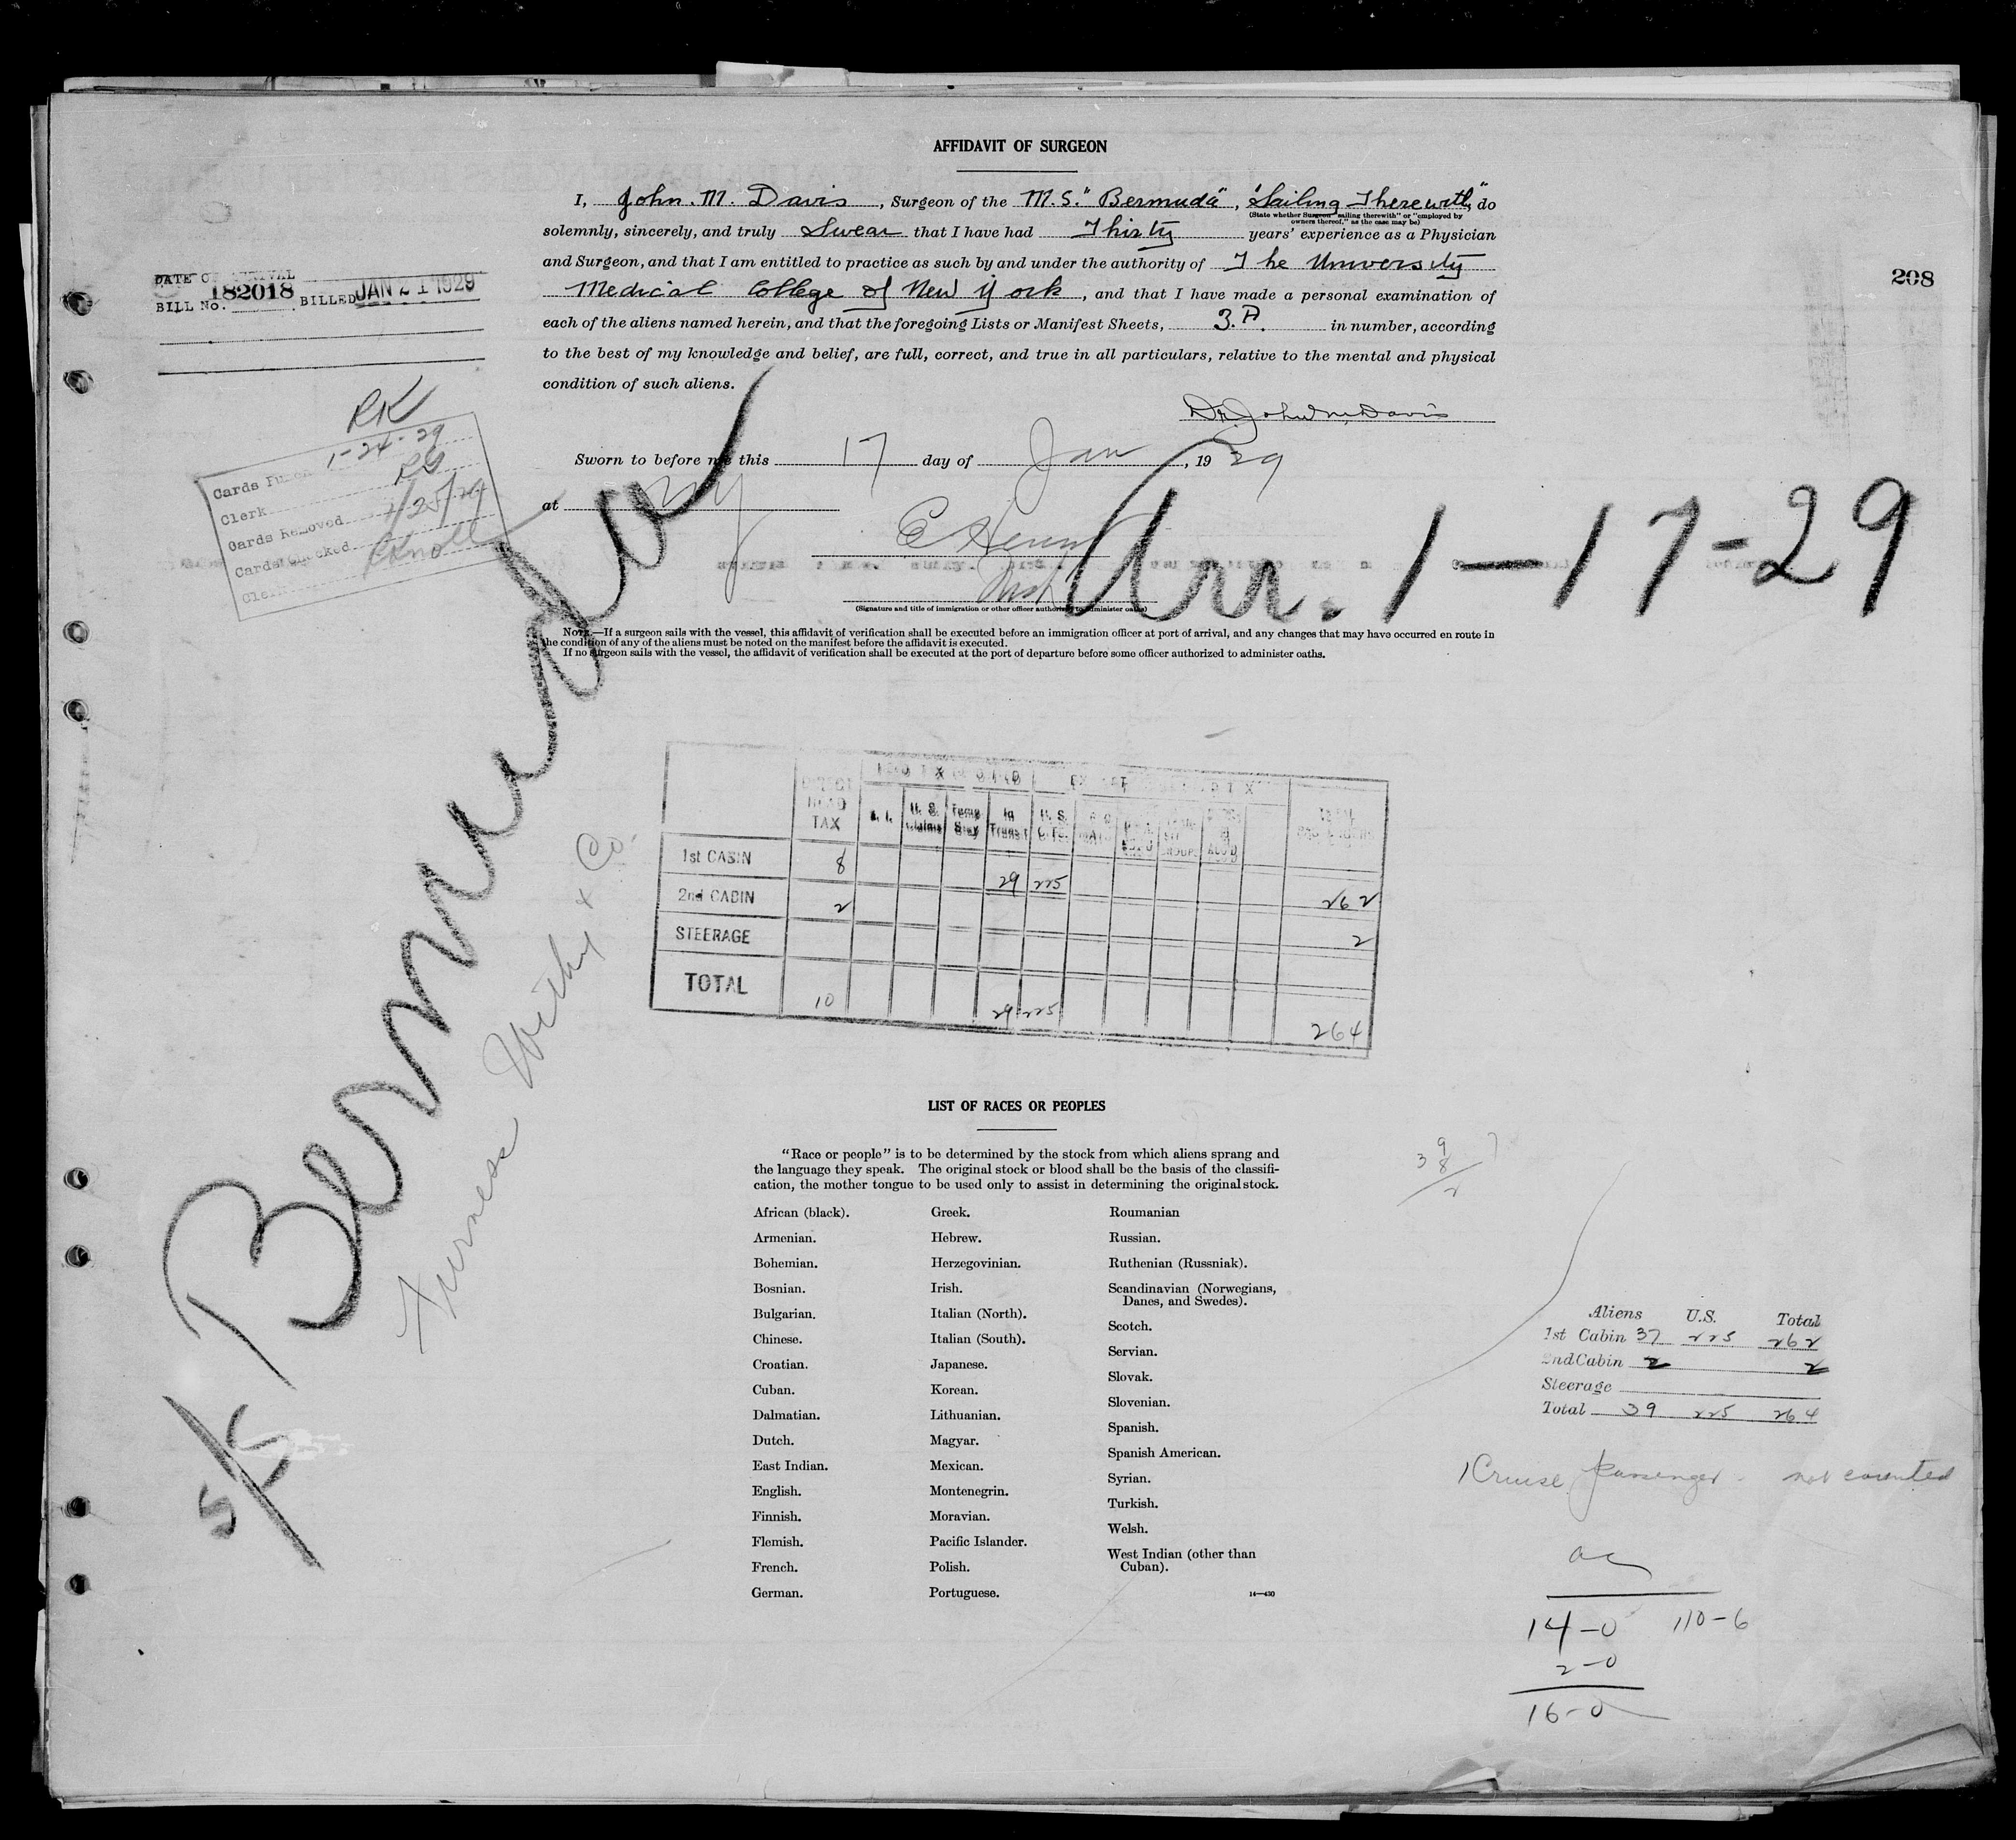 AFFIDAVIT OF SURGEON
I, John. M. Davis, Surgeon of the M.S. "Bermuda", "Sailing Therewith," do
(State whether Surgeon "sailing therewith" or "employed by
owners thereof," as the case may be)
solemnly, sincerely, and truly Swear that I have had Thirty years' experience as a Physician
and Surgeon, and that I am entitled to practice as such by and under the authority of The University
Medical College of New York, and that I have made a personal examination of
each of the aliens named herein, and that the foregoing Lists or Manifest Sheets, in number, according
to the best of my knowledge and belief, are full, correct, and true in all particulars, relative to the mental and physical
condition of such aliens.
Dr. John M. Davis
Sworn to before me this 17 day of Jan, 1929
at NY
(Signature and title of immigration or other officer authorized to administer oaths)
208
DATE OF ARRIVAL
BILL NO. 182018 BILLED JAN 21 1929
RK
Cards Punch 1-24-29
Clerk
Cards Removed 1/25/29
Cards Checked
Clerk
Arr. 1-17-29
NOTE.—If a surgeon sails with the vessel, this affidavit of verification shall be executed before an immigration officer at port of arrival, and any changes that may have occurred en route in
the condition of any of the aliens must be noted on the manifest before the affidavit is executed.
If no surgeon sails with the vessel, the affidavit of verification shall be executed at the port of departure before some officer authorized to administer oaths.
Bermuda
Furness Withy & Co.
5/
DIRECT HEAD TAX U. S. Claims Temp Stay In Transit U. S. C
1st CABIN 8 29 225 262
2nd CABIN 2 2
STEERAGE
TOTAL 10 29 225 264
LIST OF RACES OR PEOPLES
"Race or people" is to be determined by the stock from which aliens sprang and
the language they speak. The original stock or blood shall be the basis of the classifi-
cation, the mother tongue to be used only to assist in determining the original stock.
African (black).
Armenian.
Bohemian.
Bosnian.
Bulgarian.
Chinese.
Croatian.
Cuban.
Dalmatian.
Dutch.
East Indian.
English.
Finnish.
Flemish.
French.
German.
Greek.
Hebrew.
Herzegovinian.
Irish.
Italian (North).
Italian (South).
Japanese.
Korean.
Lithuanian.
Magyar.
Mexican.
Montenegrin.
Moravian.
Pacific Islander.
Polish.
Portuguese.
Roumanian
Russian.
Ruthenian (Russniak).
Scandinavian (Norwegians,
Danes, and Swedes).
Scotch.
Servian.
Slovak.
Slovenian.
Spanish.
Spanish American.
Syrian.
Turkish.
Welsh.
West Indian (other than
Cuban).
14—430
Aliens U.S. Total
1st Cabin 37 225 262
2nd Cabin 2 2
Steerage
Total 39 225 264
1 Cruise passenger - not counted
14-0 110-6
2-0
16-0